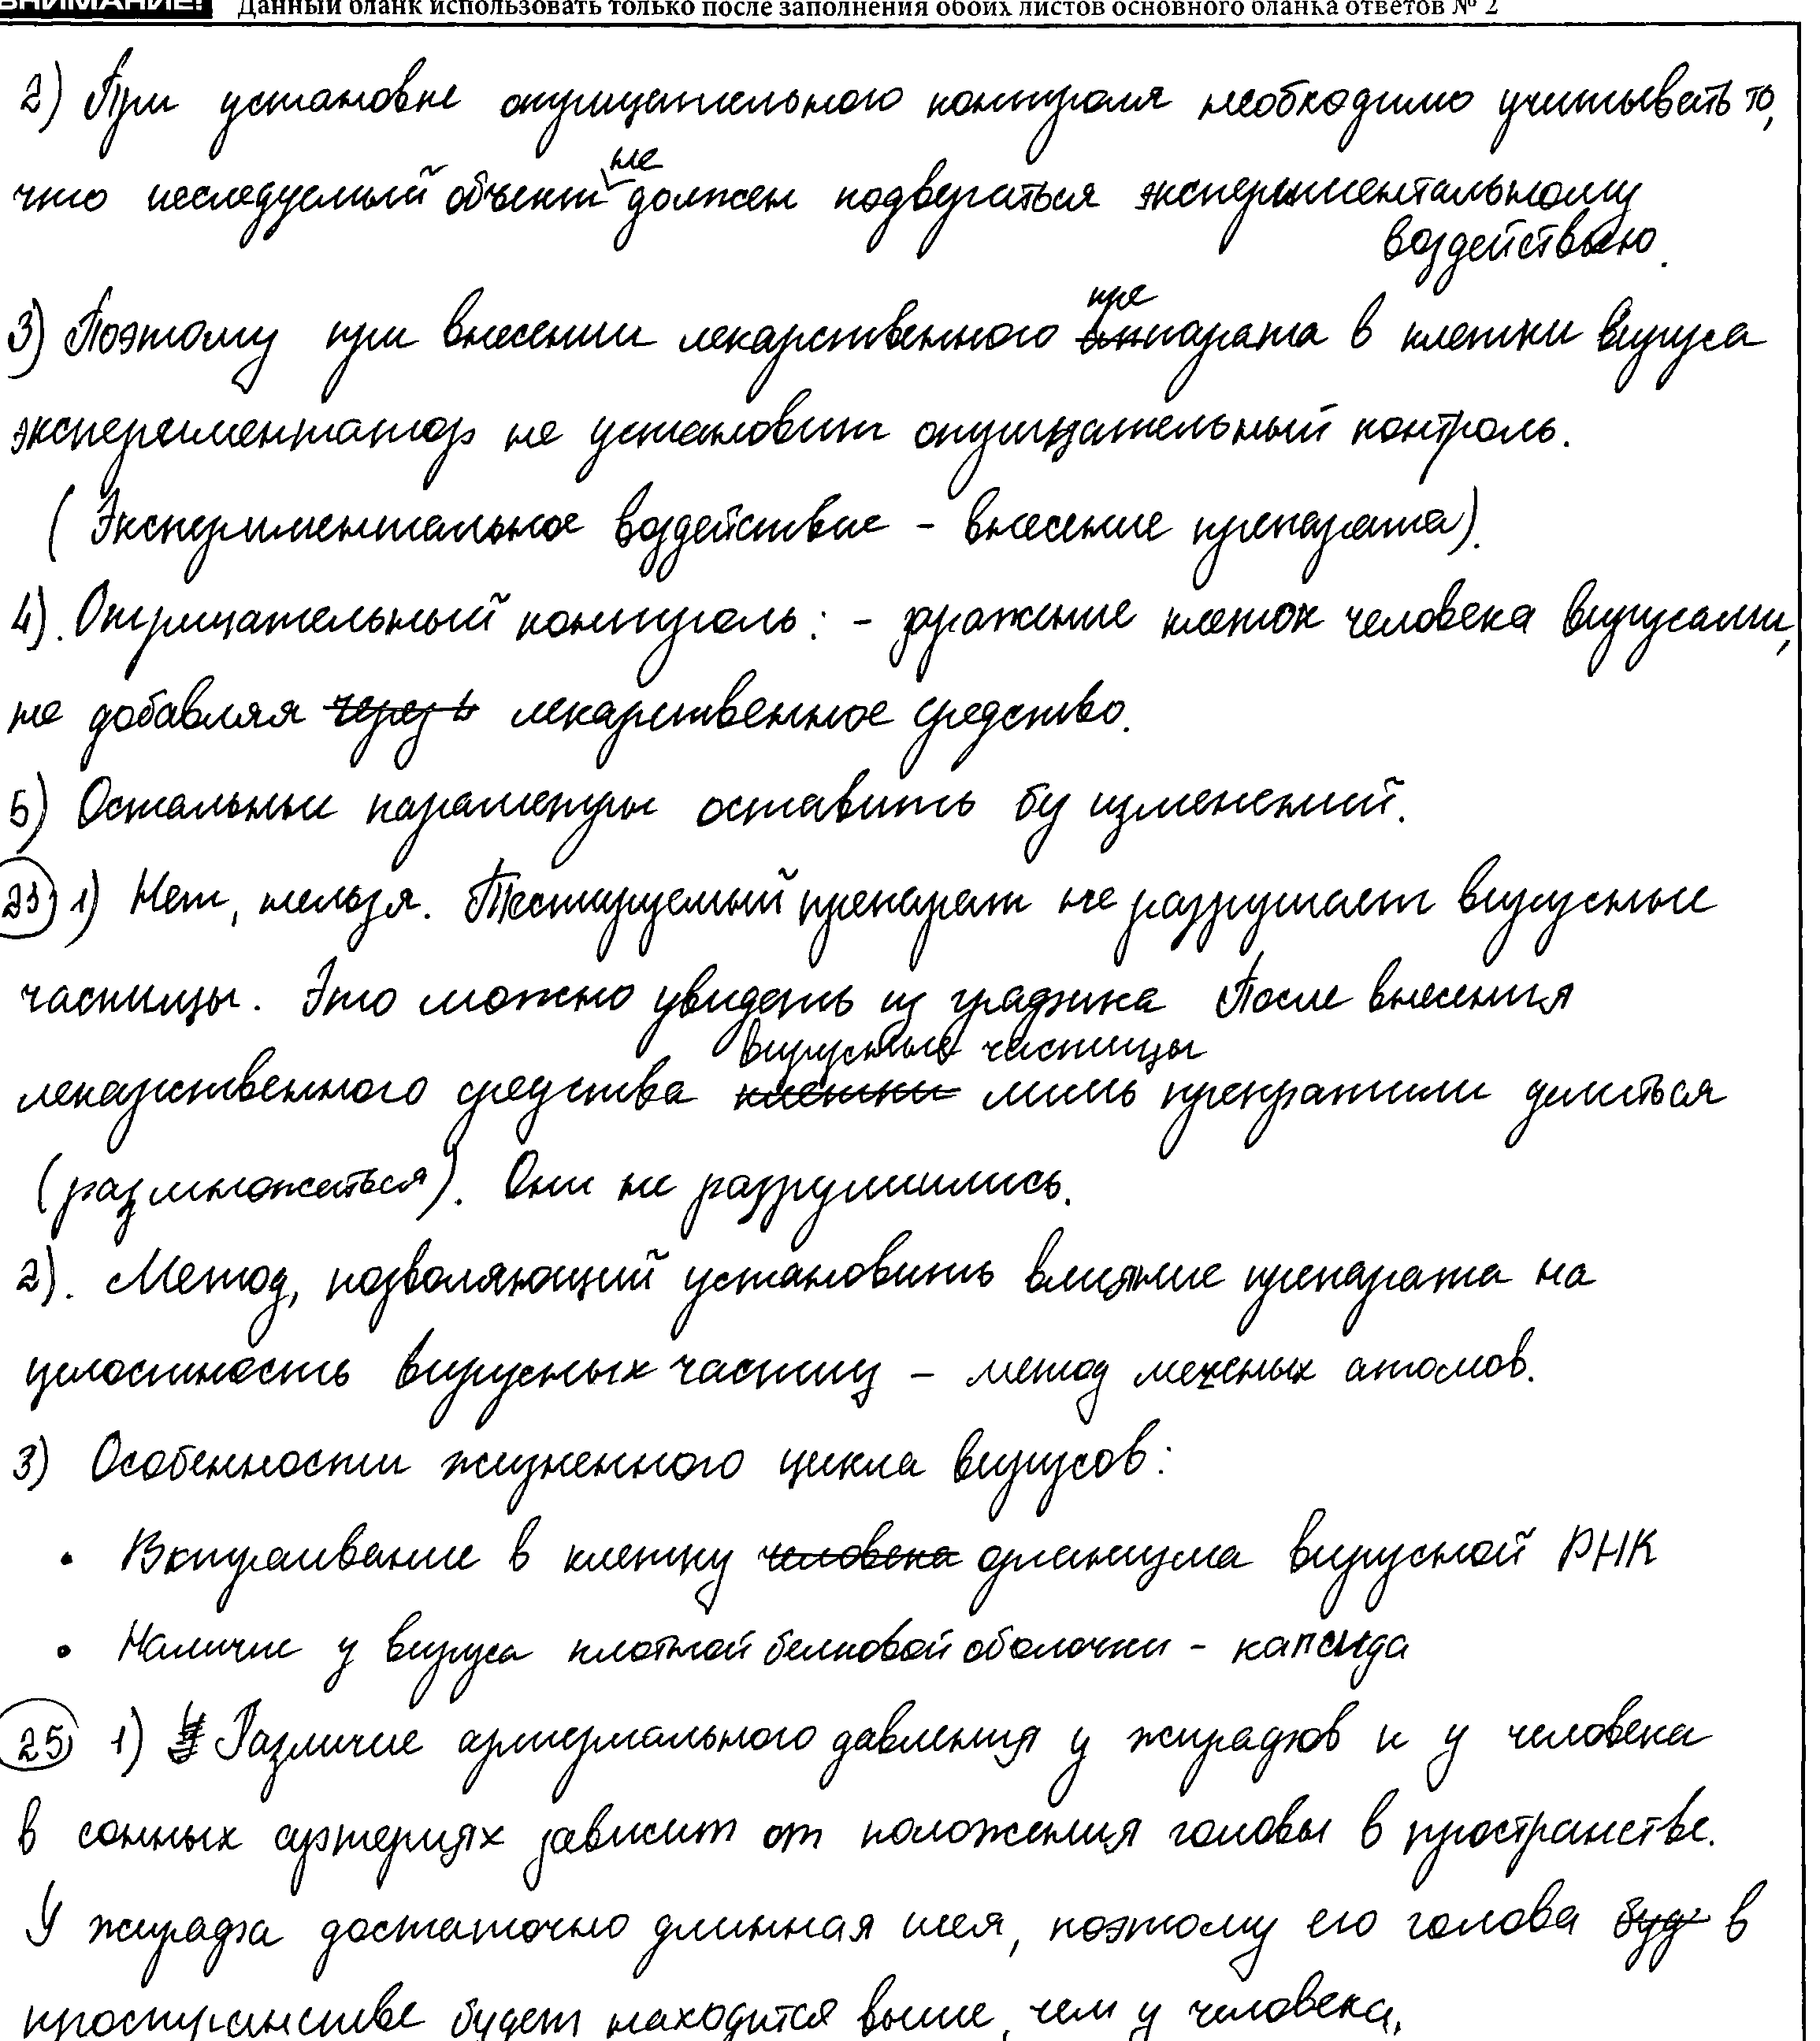 ВНИМАНИЕ! Данный бланк использовать только после заполнения обоих листов основного бланка ответов № 2
2) При установке отрицательного контроля необходимо учитывать то,
что исследуемый объект не должен подвергаться экспериментальному
воздействию.
3) Поэтому при внесении лекарственного препарата в клетки вируса
экспериментатор не установит отрицательный контроль.
(Экспериментальное воздействие - внесение препарата).
4). Отрицательный контроль: - заражение клеток человека вирусами,
не добавляя через в лекарственное средство.
5) Остальные параметры оставить без изменений.
23) 1) Нет, нельзя. Тестируемый препарат не разрушает вирусные
частицы. Это можно увидеть из графика После внесения
лекарственного средства клетки вирусные частицы лишь прекратили делиться
(размножаться). Они не разрушились.
2). Метод, позволяющий установить влияние препарата на
целостность вирусных частиц - метод меченых атомов.
3) Особенности жизненного цикла вирусов:
• Встраивание в клетку человека организма вирусной РНК
• Наличие у вируса плотной белковой оболочки - капсида
25) 1) Различие артериального давления у жирафов и у человека
в сонных артериях зависит от положения головы в пространстве.
У жирафа достаточно длинная шея, поэтому его голова буд в
пространстве будет находится выше, чем у человека.